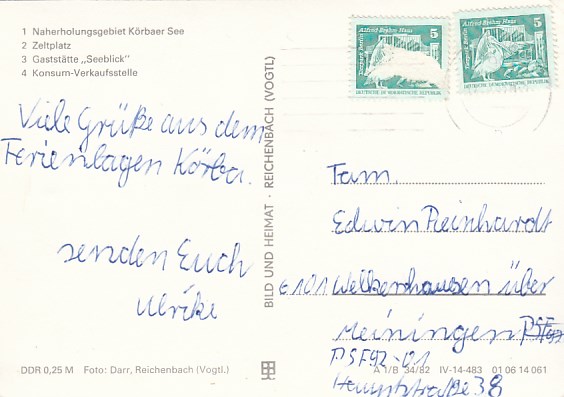 1 Naherholungsgebiet Körbaer See
2 Zeltplatz
3 Gaststätte "Seeblick"
4 Konsum-Verkaufsstelle
Viele Grüße aus dem
Ferienlager Körba.
senden Euch
Ulrike
DDR 0,25 M Foto: Darr, Reichenbach (Vogtl.)
BILD UND HEIMAT · REICHENBACH (VOGTL)
Alfred-Brehm Haus 5
Tierpark Berlin
DEUTSCHE DEMOKRATISCHE REPUBLIK
Alfred-Brehm Haus 5
Tierpark Berlin
DEUTSCHE DEMOKRATISCHE REPUBLIK
Fam.
Edwin Reinhardt
6101 Welkershausen über
Meiningen PSF
PSF92-01
Hauptstraße 38
A 1/B 34/82 IV-14-483 01 06 14 061